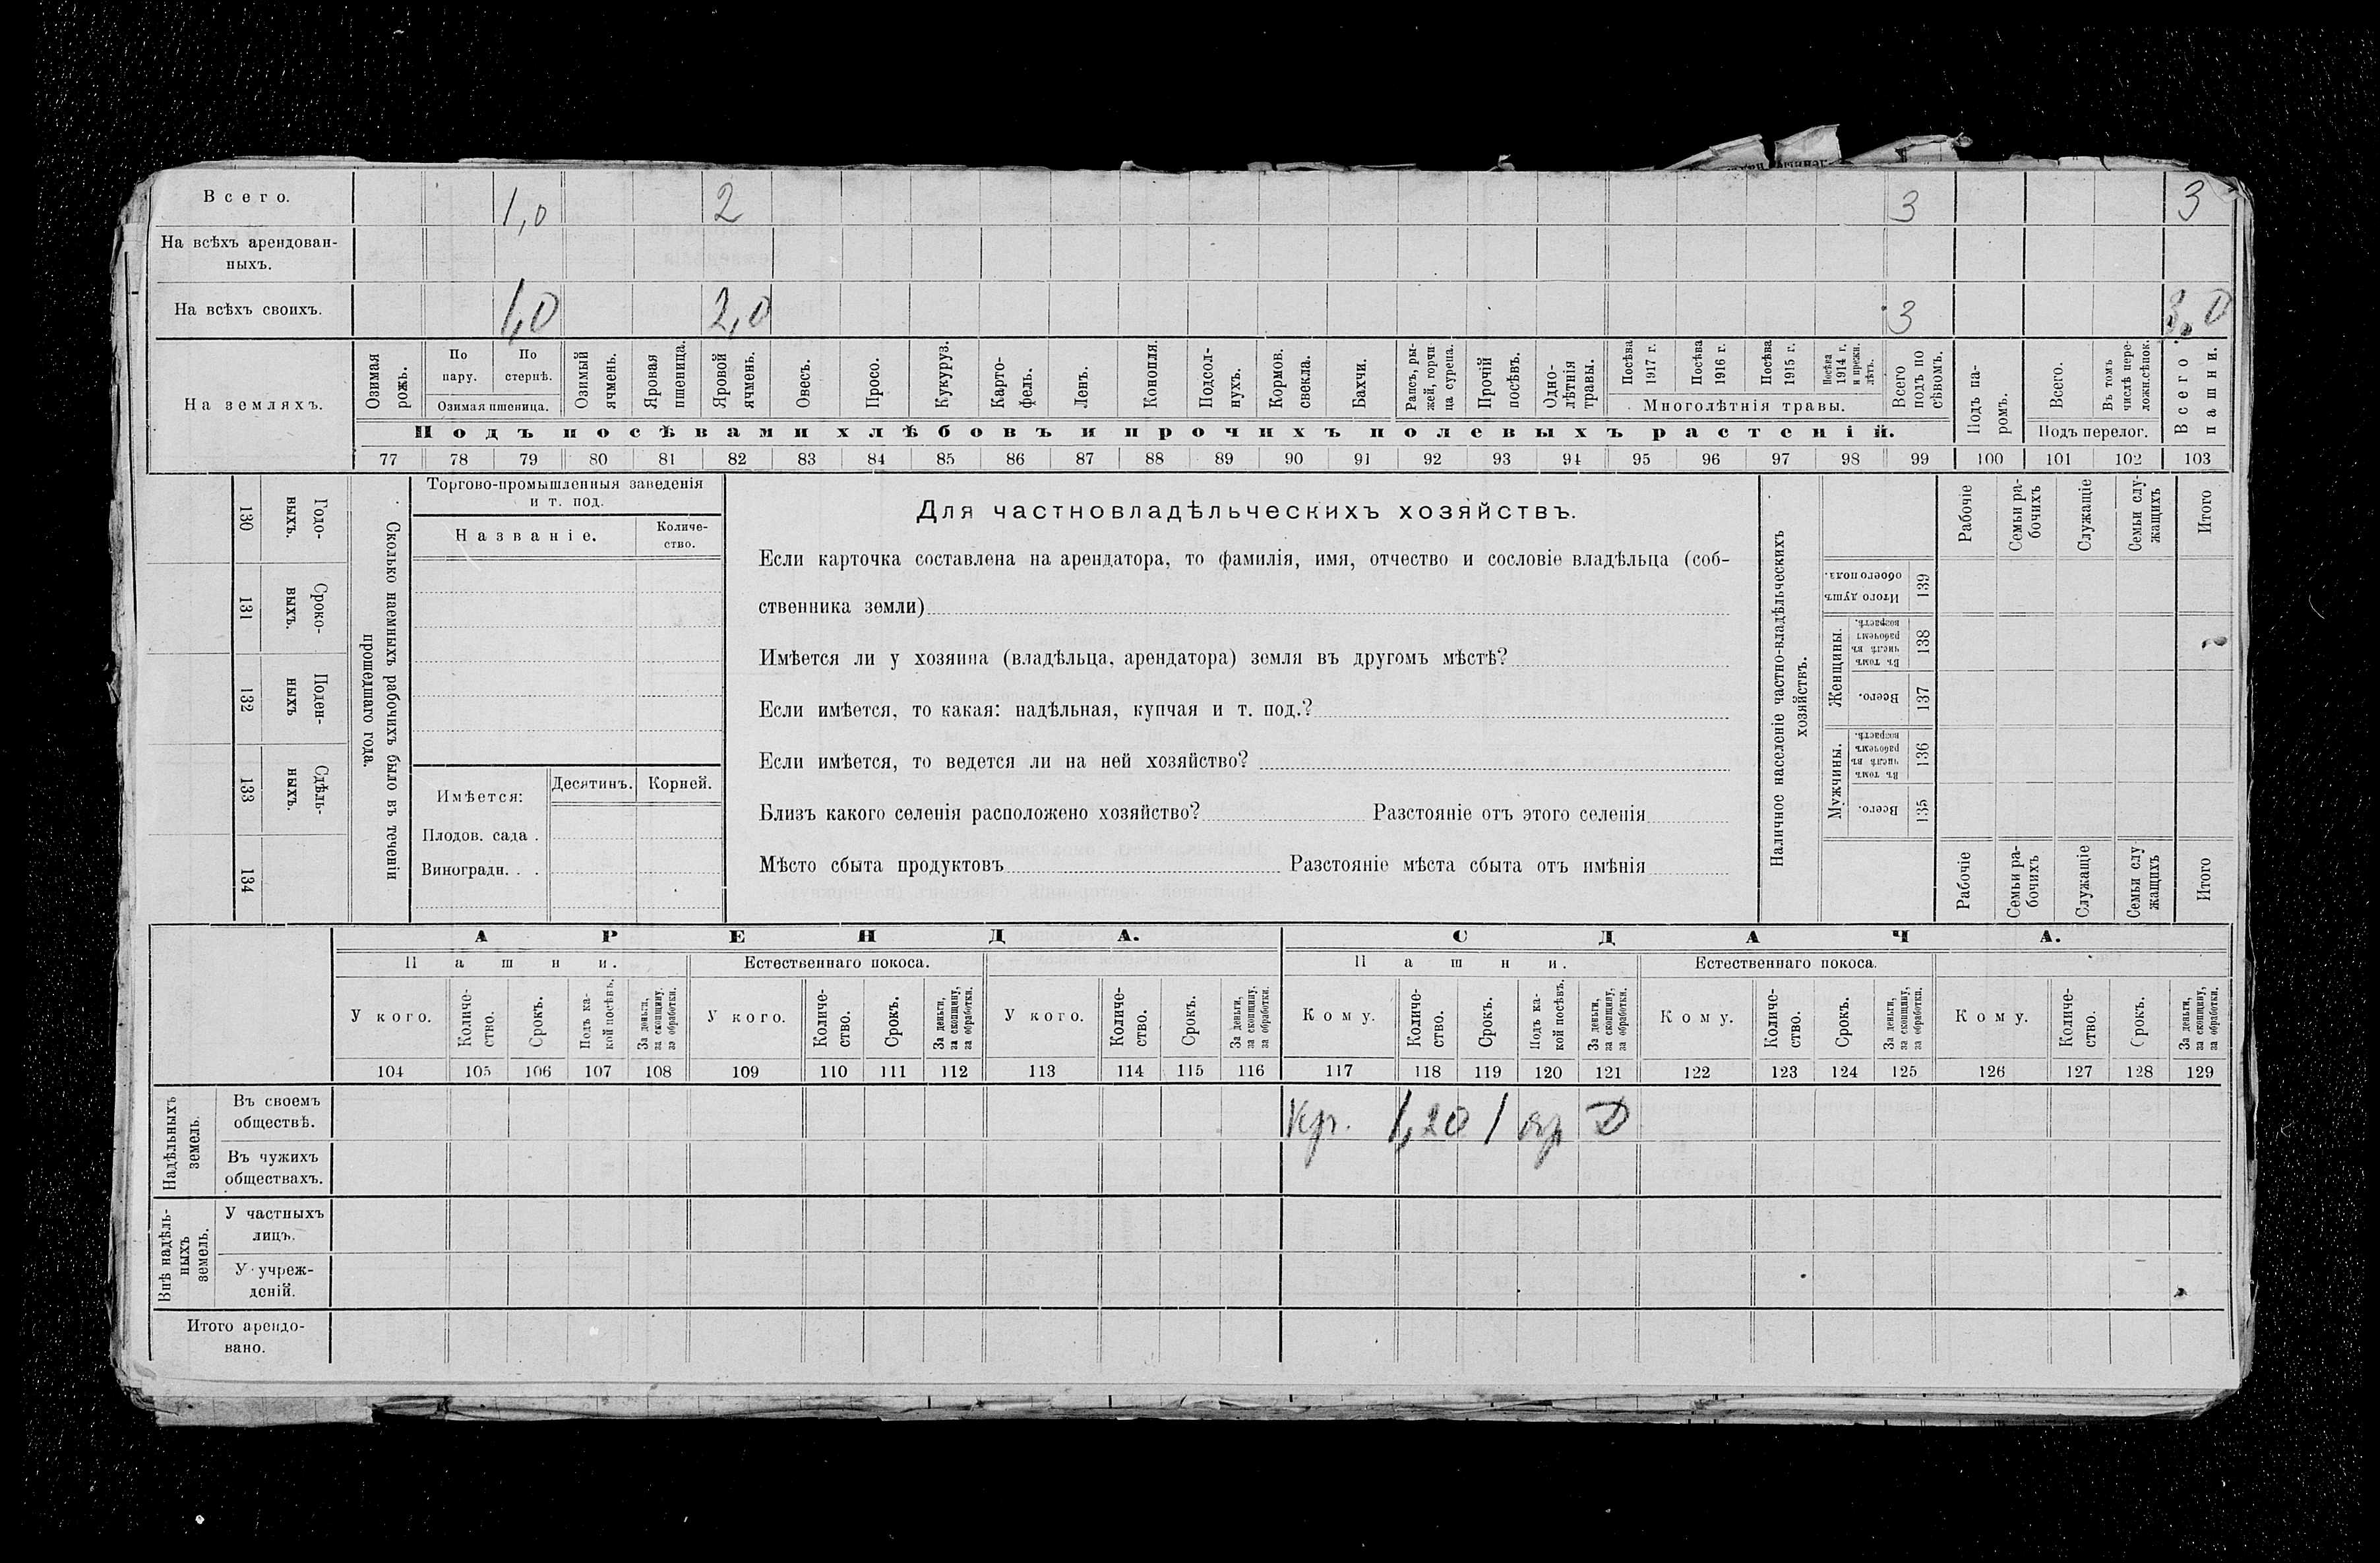 Всего. 1,0 2 3 3
На всѣхъ арендован-
ныхъ.
На всѣхъ своихъ. 1,0 2,0 3 3,0
На земляхъ.
Озимая рожь.
По пару.
По стернѣ.
Озимая пшеница.
Озимый ячмень.
Яровая пшеница.
Яровой ячмень.
Овесъ.
Просо.
Кукуруз.
Карто-
фель.
Ленъ.
Конопля.
Подсол-
нухъ.
Кормов. свекла.
Бахчи.
Рапсъ, ры-
жей, горчи
ца сурепа.
Прочій посѣвъ.
Одно-
лѣтнія
травы.
Посѣва 1917 г.
Посѣва 1916 г.
Посѣва 1915 г.
Посѣва 1914 г. и прежн. лѣтъ.
Многолѣтнія травы.
Всего подъ по
сѣвомъ.
Подъ па-
ромъ.
Всего.
Въ томъ числѣ пере-
ложн.сѣнок.
Подъ перелог.
Всего пашни.
Подъ посѣвами хлѣбовъ и прочихъ полевыхъ растеній.
77 78 79 80 81 82 83 84 85 86 87 88 89 90 91 92 93 94 95 96 97 98 99 100 101 102 103
130 Годо-
выхъ.
131 Сроко-
выхъ.
132 Поден-
ныхъ
133 Сдѣль-
ныхъ.
134
Сколько наемныхъ рабочихъ было въ теченіи
прошедшаго года.
Торгово-промышленныя заведенія
и т. под.
Названіе.
Количе-
ство.
Имѣется:
Десятинъ. Корней.
Плодов. сада .
Виноградн. . .
Для частновладѣльческихъ хозяйствъ.
Если карточка составлена на арендатора, то фамилія, имя, отчество и сословіе владѣльца (соб-
ственника земли)
Имѣется ли у хозяина (владѣльца, арендатора) земля въ другомъ мѣстѣ?
Если имѣется, то какая: надѣльная, купчая и т. под.?
Если имѣется, то ведется ли на ней хозяйство?
Близъ какого селенія расположено хозяйство? Разстояніе отъ этого селенія
Мѣсто сбыта продуктовъ Разстояніе мѣста сбыта отъ имѣнія
Наличное населеніе частно-владѣльческихъ
хозяйствъ.
Рабочіе
Семьи ра-
бочихъ
Служащіе
Семьи слу-
жащихъ
Итого
Итого душъ
обоего пола.
139
Женщины.
Въ томъ
числѣ въ
рабочемъ
возрастѣ.
138
Всего.
137
Мужчины.
Въ томъ
числѣ въ
рабочемъ
возрастѣ.
136
Всего.
135
Рабочіе
Семьи ра-
бочихъ
Служащіе
Семьи слу
жащихъ
Итого
АРЕНДА. СДАЧА.
Пашни. Естественнаго покоса. Пашни. Естественнаго покоса.
У кого.
Количе-
ство.
Срокъ.
Подъ ка-
кой посѣвъ.
За деньги,
за скопщину,
за обработки.
У кого.
Количе-
ство.
Срокъ.
За деньги,
за скопщину,
за обработки.
У кого.
Количе-
ство.
Срокъ.
За деньги,
за скопщину,
за обработки.
Кому.
Количе-
ство.
Срокъ.
Подъ ка-
кой посѣвъ.
За деньги,
за скопщину,
за обработки.
Кому.
Количе-
ство.
Срокъ.
За деньги,
за скопщину,
за обработки.
Кому.
Количе-
ство.
Срокъ.
За деньги,
за скопщину,
за обработки.
104 105 106 107 108 109 110 111 112 113 114 115 116 117 118 119 120 121 122 123 124 125 126 127 128 129
Надѣльныхъ
земель.
Въ своемъ
обществѣ.
Кр. 1,20 1 яр Д
Въ чужихъ
обществахъ.
Внѣ надѣль-
ныхъ
земель.
У частныхъ
лицъ.
У учреж-
деній.
Итого арендо-
вано.